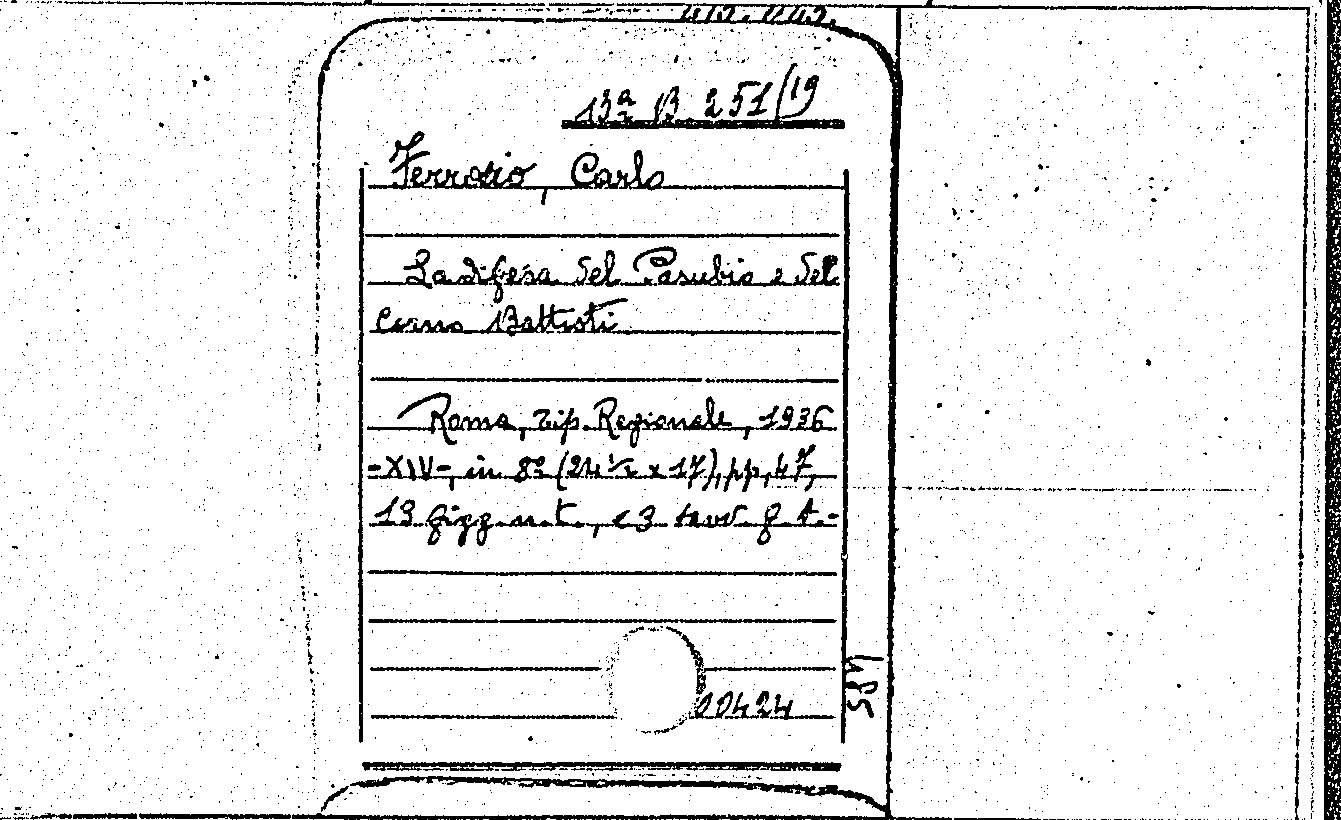 13ª B. 251/19
Ferrario, Carlo
La difesa del Pasubio e del
Corno Battisti
Roma, tip. Regionale, 1936
-XIV-, in 8º (24 ½ x 17), pp, 47,
19 figg. n. t., e 3 tavv. f. t.-
00424